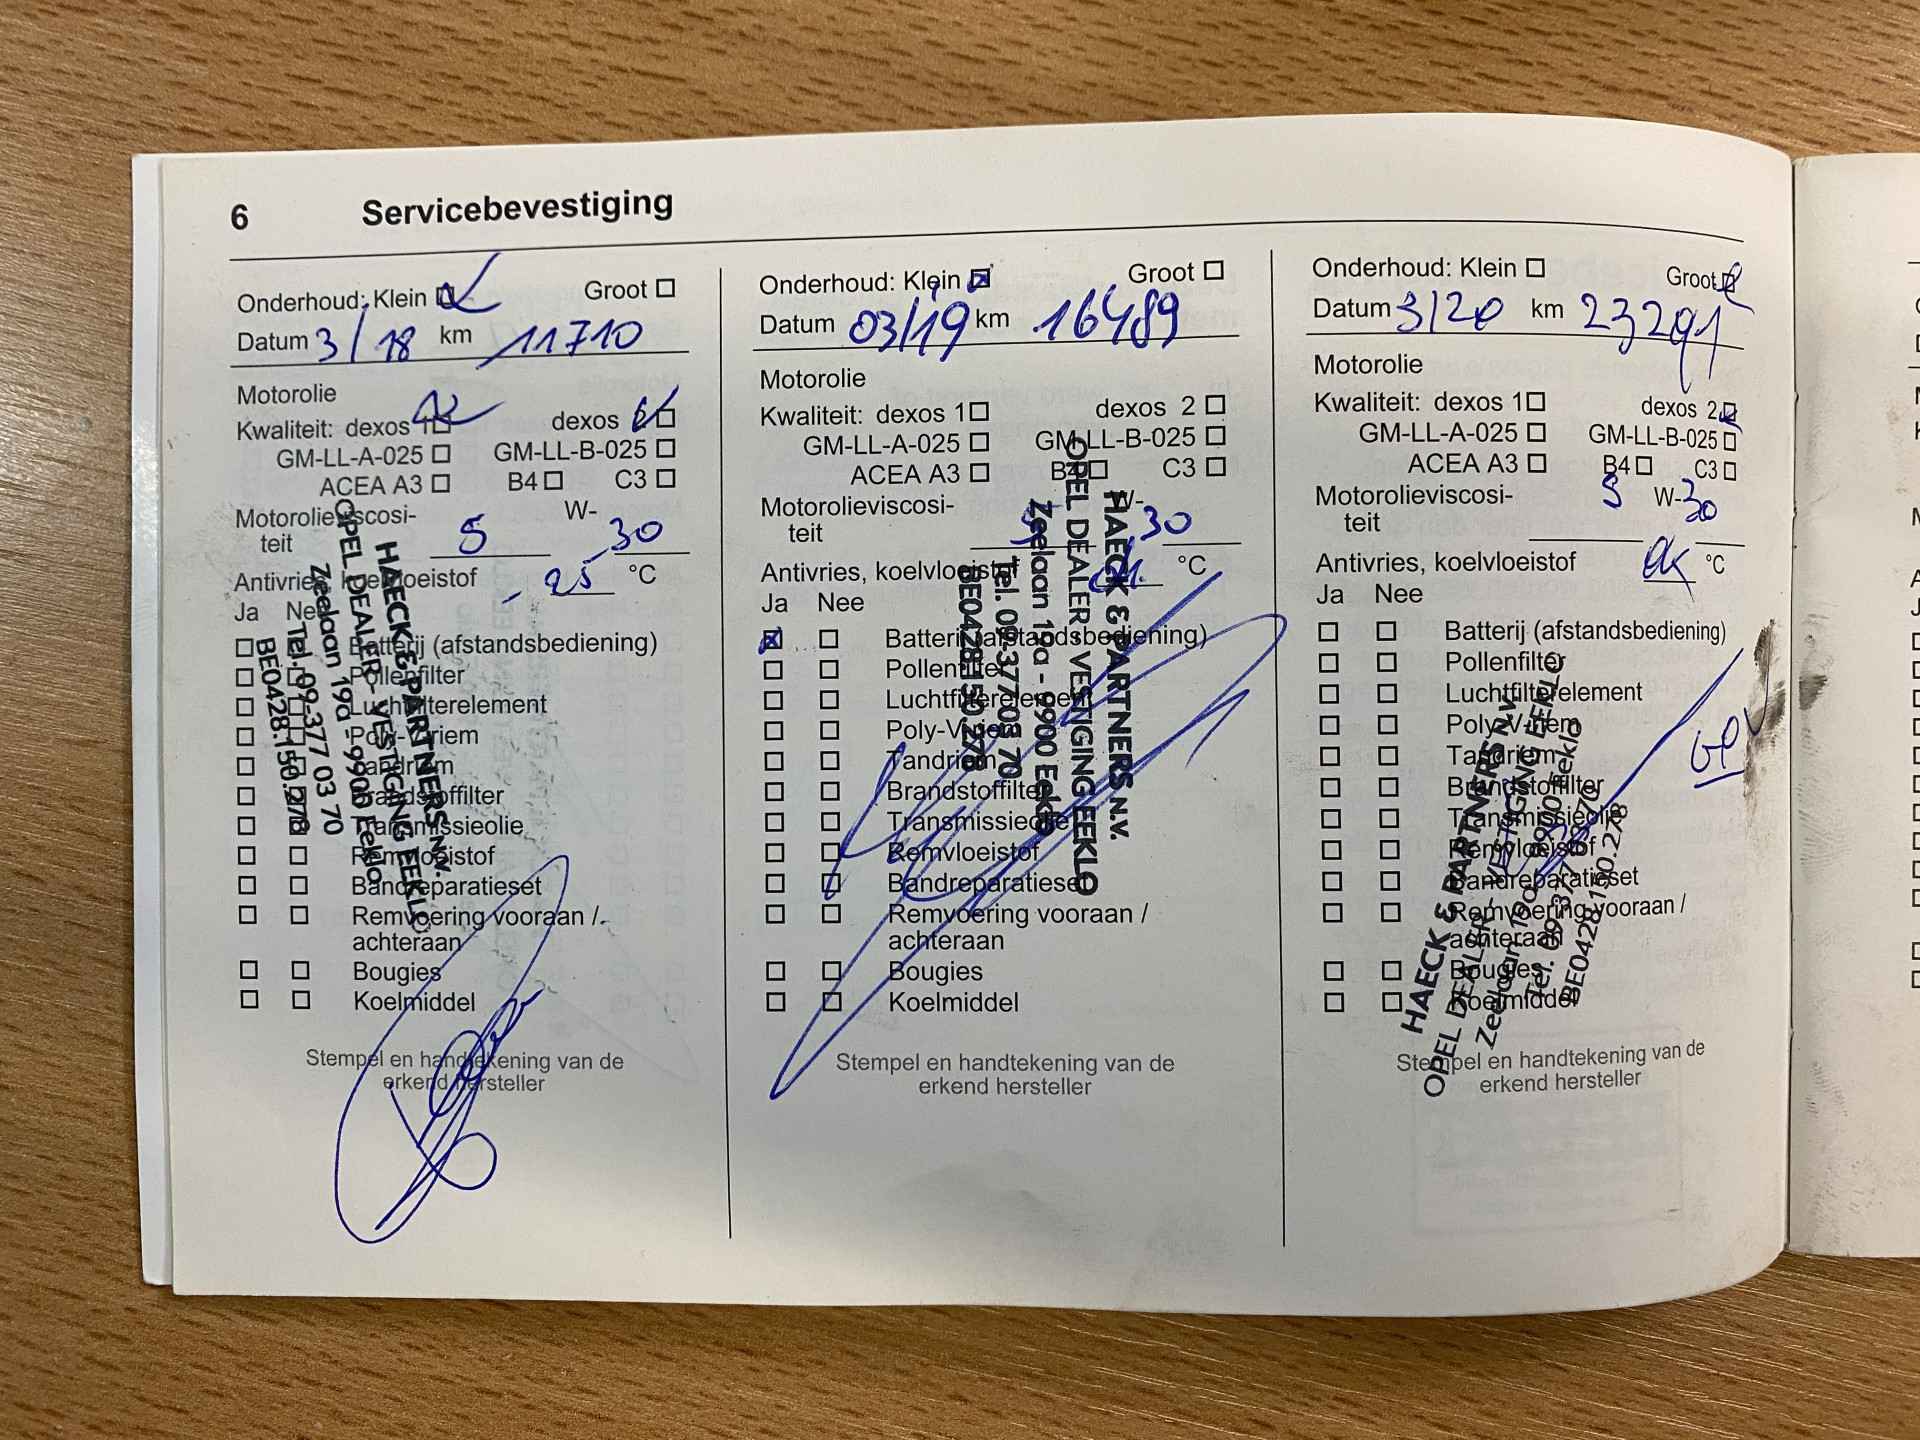 6 Servicebevestiging
Onderhoud: Klein Groot
Datum 3/18 km 11710
Motorolie
Kwaliteit: dexos 1 dexos 2
GM-LL-A-025 GM-LL-B-025
ACEA A3 B4 C3
Motorolieviscosi-
teit 5 W- 30
Antivries, koelvloeistof -25 °C
Ja Nee
Batterij (afstandsbediening)
Pollenfilter
Luchtfilterelement
Poly-V-riem
Tandriem
Brandstoffilter
Transmissieolie
Remvloeistof
Bandreparatieset
Remvoering vooraan /
achteraan
Bougies
Koelmiddel
HAECK & PARTNERS N.V.
OPEL DEALER - VESTIGING EEKLO
Zeelaan 19a - 9900 Eeklo
Tel. 09-377 03 70
BE0428.150.278
Stempel en handtekening van de
erkend hersteller
Onderhoud: Klein Groot
Datum 03/19 km 16489
Motorolie
Kwaliteit: dexos 1 dexos 2
GM-LL-A-025 GM-LL-B-025
ACEA A3 B4 C3
Motorolieviscosi-
teit 5 W- 30
Antivries, koelvloeistof °C
Ja Nee
Batterij (afstandsbediening)
Pollenfilter
Luchtfilterelement
Poly-V-riem
Tandriem
Brandstoffilter
Transmissieolie
Remvloeistof
Bandreparatieset
Remvoering vooraan /
achteraan
Bougies
Koelmiddel
HAECK & PARTNERS N.V.
OPEL DEALER - VESTIGING EEKLO
Zeelaan 19a - 9900 Eeklo
Tel. 09-377 03 70
BE0428.150.278
Stempel en handtekening van de
erkend hersteller
Onderhoud: Klein Groot
Datum 3/20 km 23291
Motorolie
Kwaliteit: dexos 1 dexos 2
GM-LL-A-025 GM-LL-B-025
ACEA A3 B4 C3
Motorolieviscosi-
teit 5 W-30
Antivries, koelvloeistof ok °C
Ja Nee
Batterij (afstandsbediening)
Pollenfilter
Luchtfilterelement
Poly-V-riem
Tandriem
Brandstoffilter
Transmissieolie
Remvloeistof
Bandreparatieset
Remvoering vooraan /
achteraan
Bougies
Koelmiddel
HAECK & PARTNERS N.V.
OPEL DEALER - VESTIGING EEKLO
Zeelaan 19a - 9900 Eeklo
Tel. 09-377 03 70
BE0428.150.278
Stempel en handtekening van de
erkend hersteller